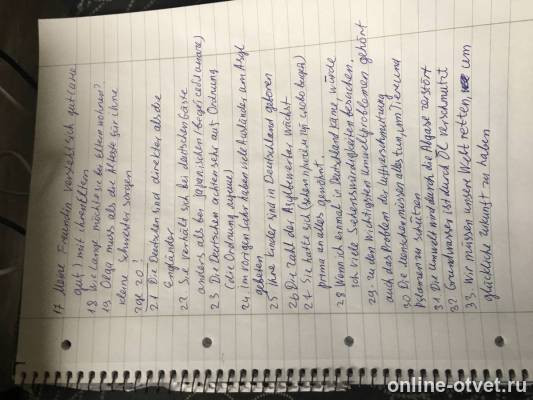 17 Meine Freundin versteht sich gut (alle
gut) mit ihren Eltern
18 Wie lange möchte sie bei Eltern wohnen?
19 Olga muss als die Älteste für ihre
kleine Schwester sorgen
20!
21 Die Deutschen sind direkter als die
Engländer
22 Sie verhält sich bei deutschen Gäste
anders als bei japanischen
23 Die Deutschen achten sehr auf Ordnung
(die Ordnung
24. im vorigen Jahr haben viele Ausländer um Asyl
gebeten
25 ihre Kinder sind in Deutschland geboren
26 Die Zahl der Asylbewerber wächst
27 Sie hatte sich
prima an alles gewöhnt.
28 Wenn ich einmal in Deutschland käme, würde
ich viele Sehenswürdigkeiten besuchen.
29. zu den wichtigsten Umweltproblemen gehört
auch das Problem der Luftverschmutzung
30 Die Menschen müssen alles tun, um Tiere und
Pflanzen zu schützen
31 Die Umwelt wird durch die Abgase zerstört
32 Grundwasser ist durch Öl verschmutzt
33 Wir müssen unsere Welt retten, um
glückliche Zukunft zu haben
online-otvet.ru